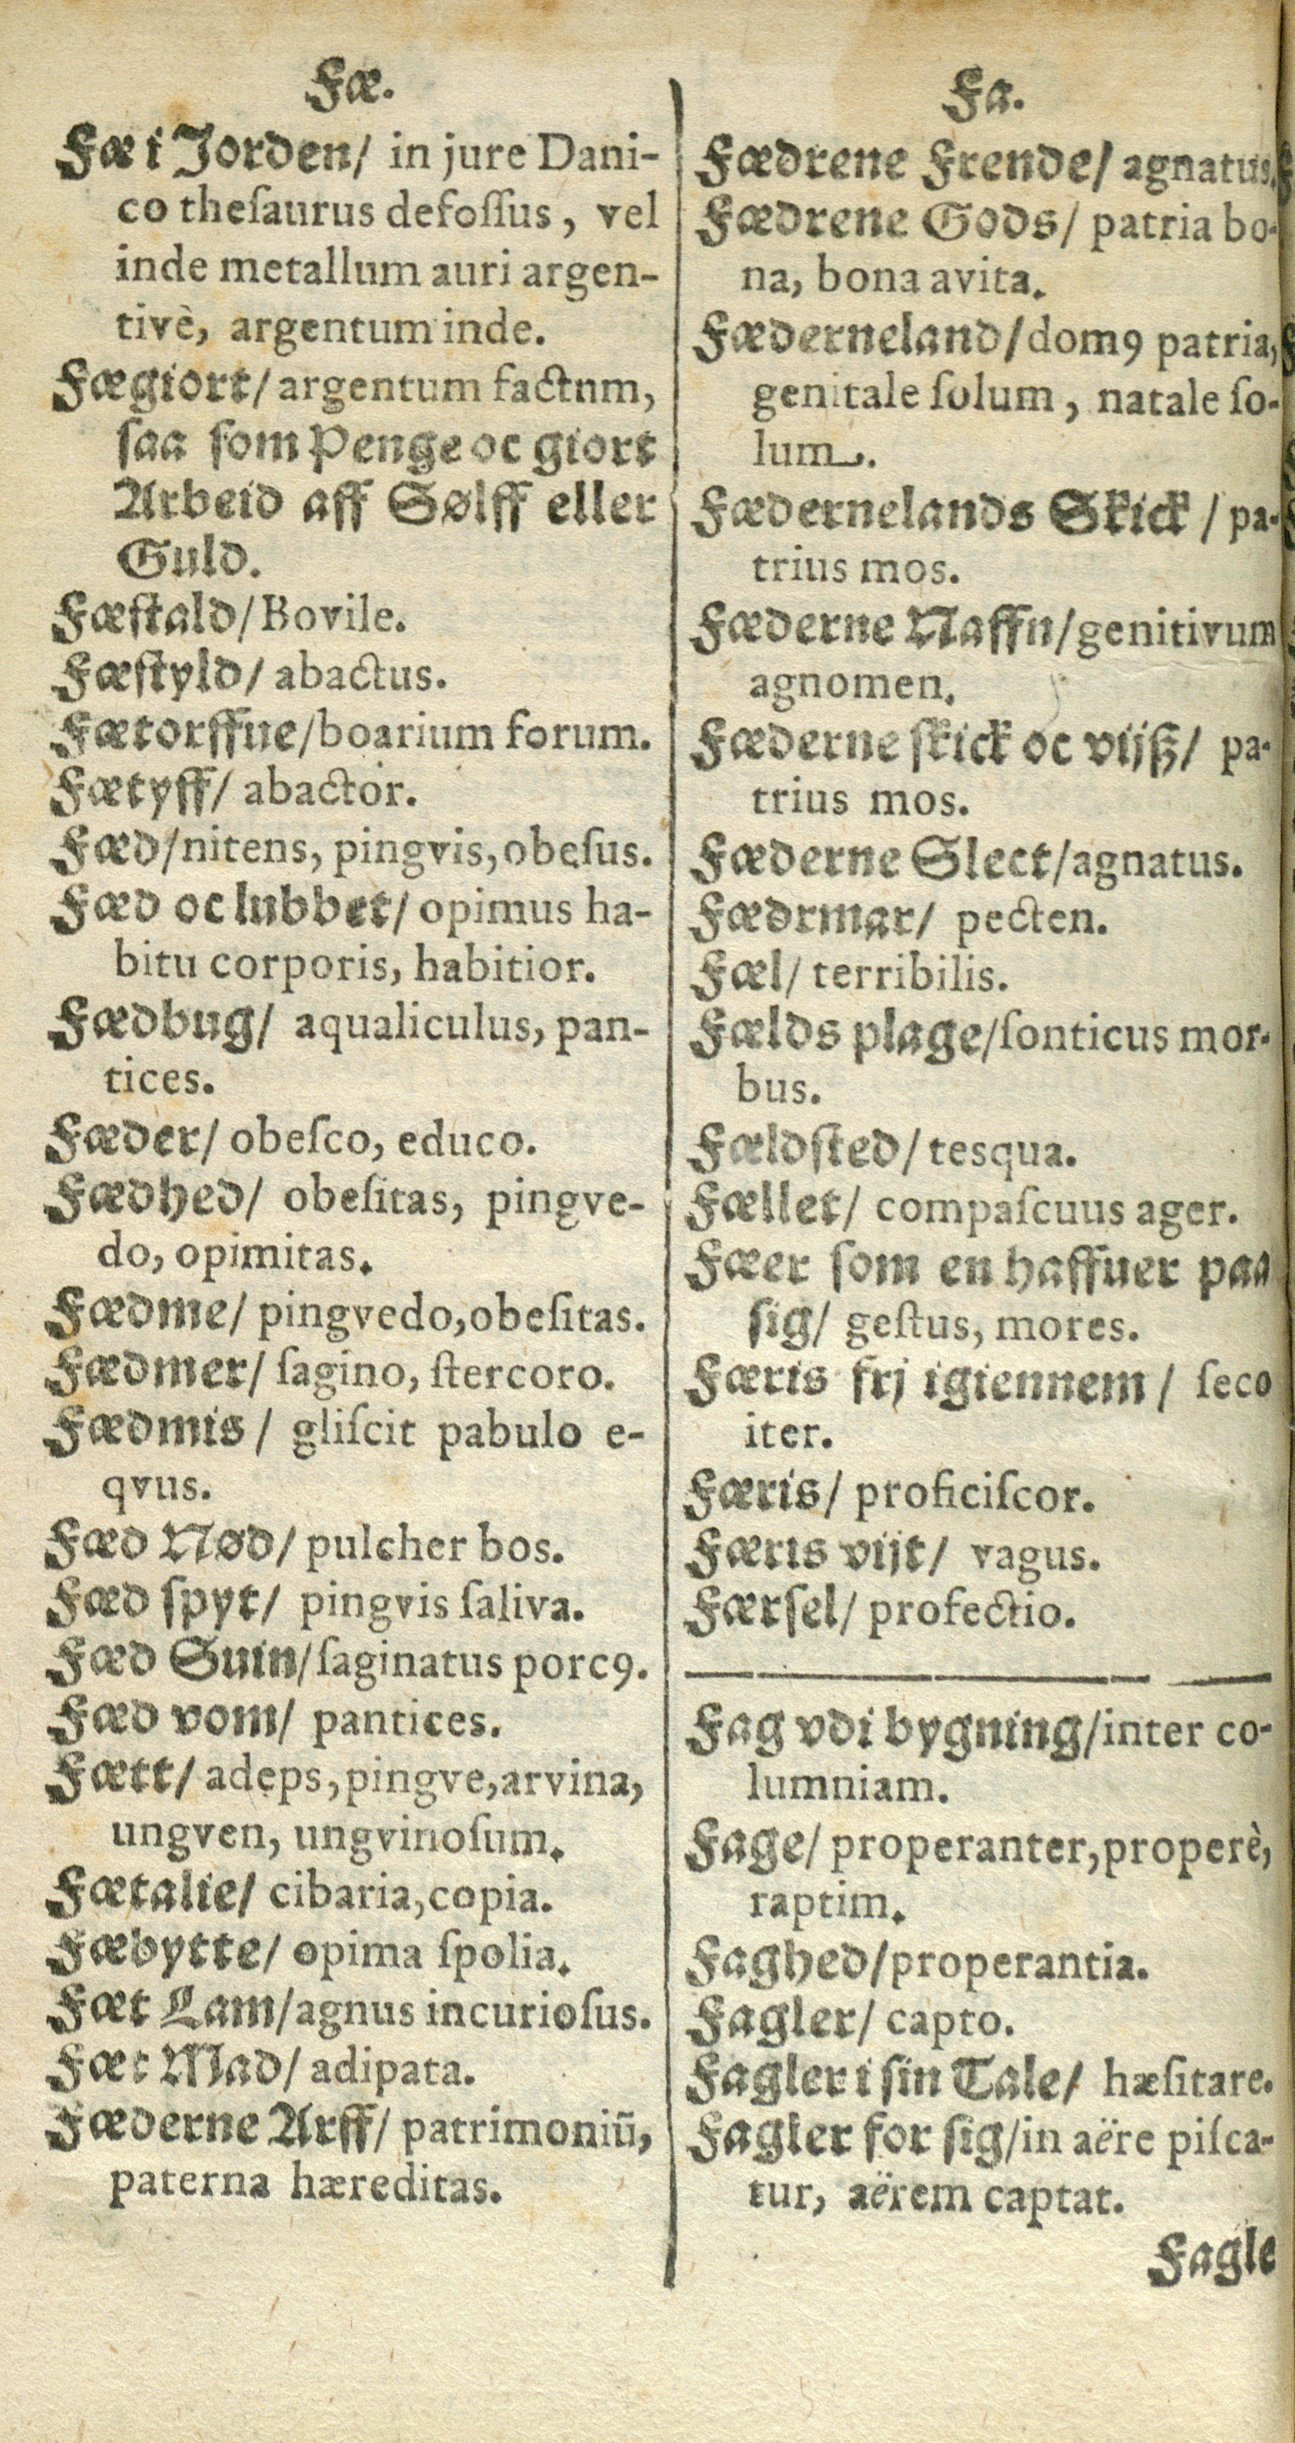 Fæ.
Fæ i Jorden/ in jure Dani-
co theſaurus defoſſus, vel
inde metallum auri argen-
tivè, argentum inde.
Fægiort/ argentum factnm,
ſaa ſom Penge oc giort
Arbeid aff Sølff eller
Guld.
Fæſtald/ Bovile.
Fæſtyld/ abactus.
Fætorffue/ boarium forum.
Fætyff/ abactor.
Fæd/ nitens, pingvis, obeſus.
Fæd oc lubbet/ opimus ha-
bitu corporis, habitior.
Fædbug/ aqualiculus, pan-
tices.
Fæder/ obeſco, educo.
Fædhed/ obeſitas, pingve-
do, opimitas.
Fædme/ pingvedo, obeſitas.
Fædmer/ ſagino, ſtercoro.
Fædmis/ gliſcit pabulo e-
qvus.
Fæd Nød/ pulcher bos.
Fæd ſpyt/ pingvis ſaliva.
Fæd Suin/ ſaginatus porcꝰ.
Fæd vom/ pantices.
Fætt/ adeps, pingve, arvina,
ungven, ungvinoſum.
Fætalie/ cibaria, copia.
Fæbytte/ opima ſpolia.
Fæt Lam/ agnus incurioſus.
Fæt Mad/ adipata.
Fæderne Arff/ patrimoniũ,
paterna hæreditas.
Fa.
Fædrene Frende/ agnatus.
Fædrene Gods/ patria bo-
na, bona avita.
Fæderneland/ domꝰ patria,
genitale ſolum, natale ſo-
lum.
Fædernelands Skick/ pa-
trius mos.
Fæderne Naffn/ genitivum
agnomen.
Fæderne ſkick oc vijß/ pa-
trius mos.
Fæderne Slect/ agnatus.
Fædrmar/ pecten.
Fæl/ terribilis.
Fælds plage/ ſonticus mor-
bus.
Fældſted/ tesqua.
Fællet/ compaſcuus ager.
Færer ſom en haffuer paa
ſig/ geſtus, mores.
Færis frj igiennem/ ſeco
iter.
Færis/ proficiſcor.
Færis vijt/ vagus.
Færſel/ profectio.
Fag vdi bygning/ inter co-
lumniam.
Fage/ properanter, properè,
raptim.
Faghed/ properantia.
Fagler/ capto.
Fagler i ſin Tale/ hæſitare.
Fagler for ſig/ in aëre piſca-
tur, aërem captat.
Fagle